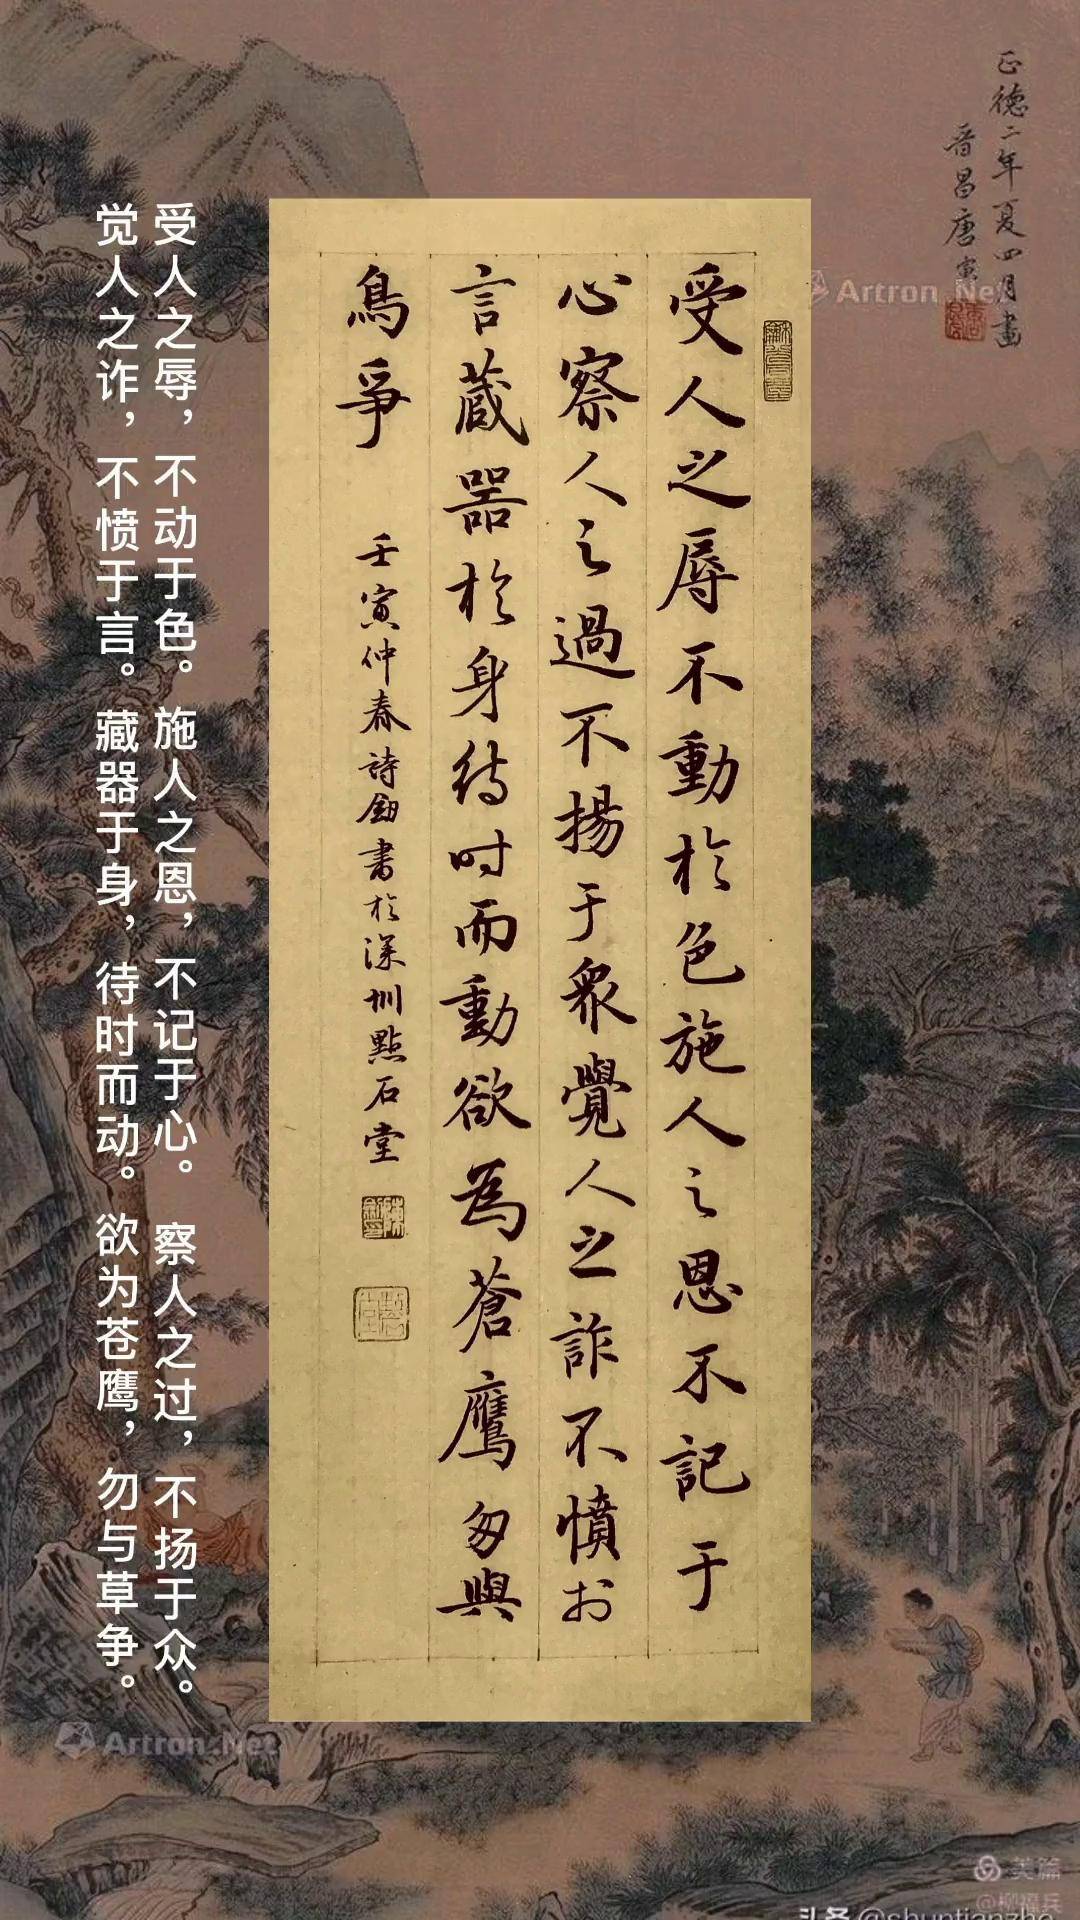 正德二年夏四月畫
晋昌唐寅
Artron.Net
受人之辱不動於色施人之恩不記于
心察人之過不揚于眾覺人之詐不憤於
言蔵器於身待时而動欲為蒼鷹勿與
鳥爭
壬寅仲春詩劍書於深圳點石堂
受人之辱，不动于色。施人之恩，不记于心。察人之过，不扬于众。
觉人之诈，不愤于言。藏器于身，待时而动。欲为苍鹰，勿与草争。
Artron.Net
美篇
头条 @shuntianzhe